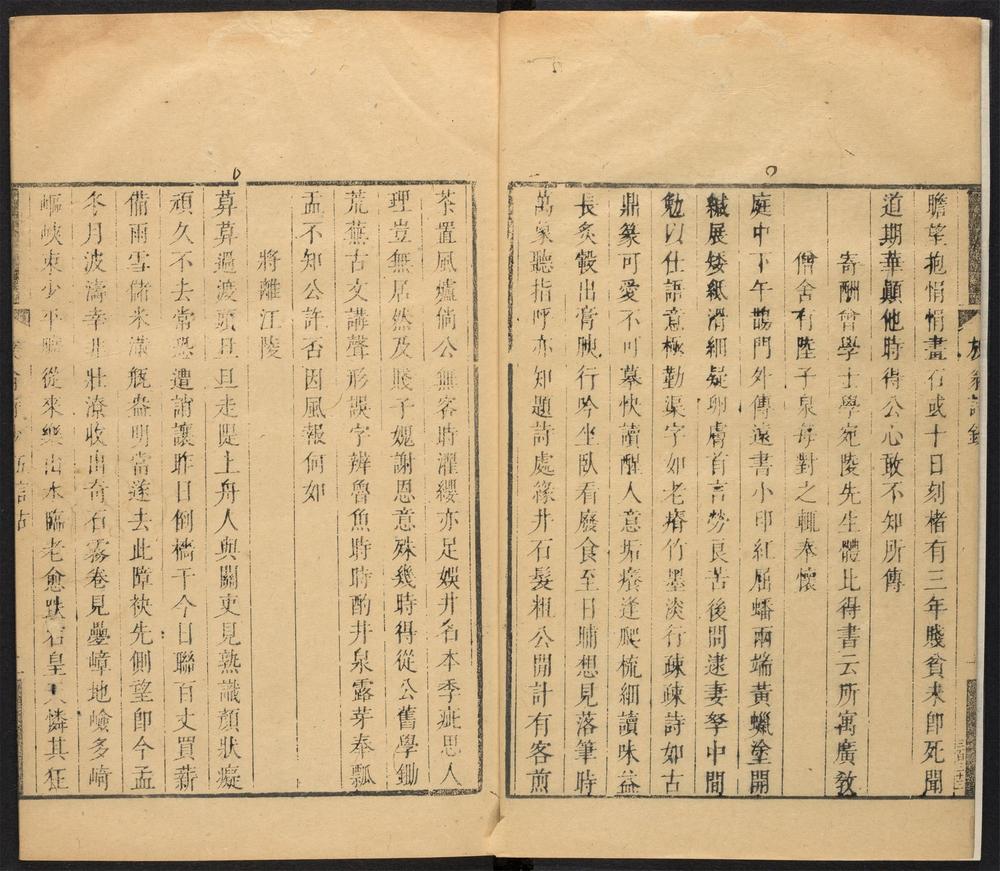 瞻望抱悁悁畫石或十日刻楮有三年賤貧未即死聞
道期華顛他時得公心敢不知所傳
寄酬曾學士學宛陵先生體比得書云所寓廣敎
僧舍有陸子泉每對之輒奉懷
庭中下午鵲門外傳遠書小印紅屈蟠兩端黃蠟塗開
緘展矮紙滑細疑卵膚首言勞良苦後問逮妻孥中間
勉以仕語意極勤渠字如老瘠竹墨淡行疎疎詩如古
鼎篆可愛不可摹快讀醒人意垢癢逢爬梳細讀味益
長炙轂出膏腴行吟坐臥看廢食至日晡想見落筆時
萬象聽指呼亦知題詩處綠井石髮粗公閒計有客煎
茶置風爐倘公無客時濯纓亦足娛井名本季疵思人
理豈無居然及賤子媿謝恩意殊幾時得從公舊學鋤
荒蕪古文講聲形誤字辨魯魚時時酌井泉露芽奉瓢
盂不知公許否因風報何如
將離江陵
暮暮過渡頭旦旦走隄上舟人與關吏見熟識顏狀癡
頑久不去常恐遭誚讓昨日倒檣干今日聯百丈買薪
備雨雪儲米滿瓶盎明當遂去此障袂先側望即今孟
冬月波濤幸非壯潦收出奇石霧卷見疊嶂地嶮多崎
嶇峽束少平曠從來樂山水臨老愈跌宕皇天憐其狂